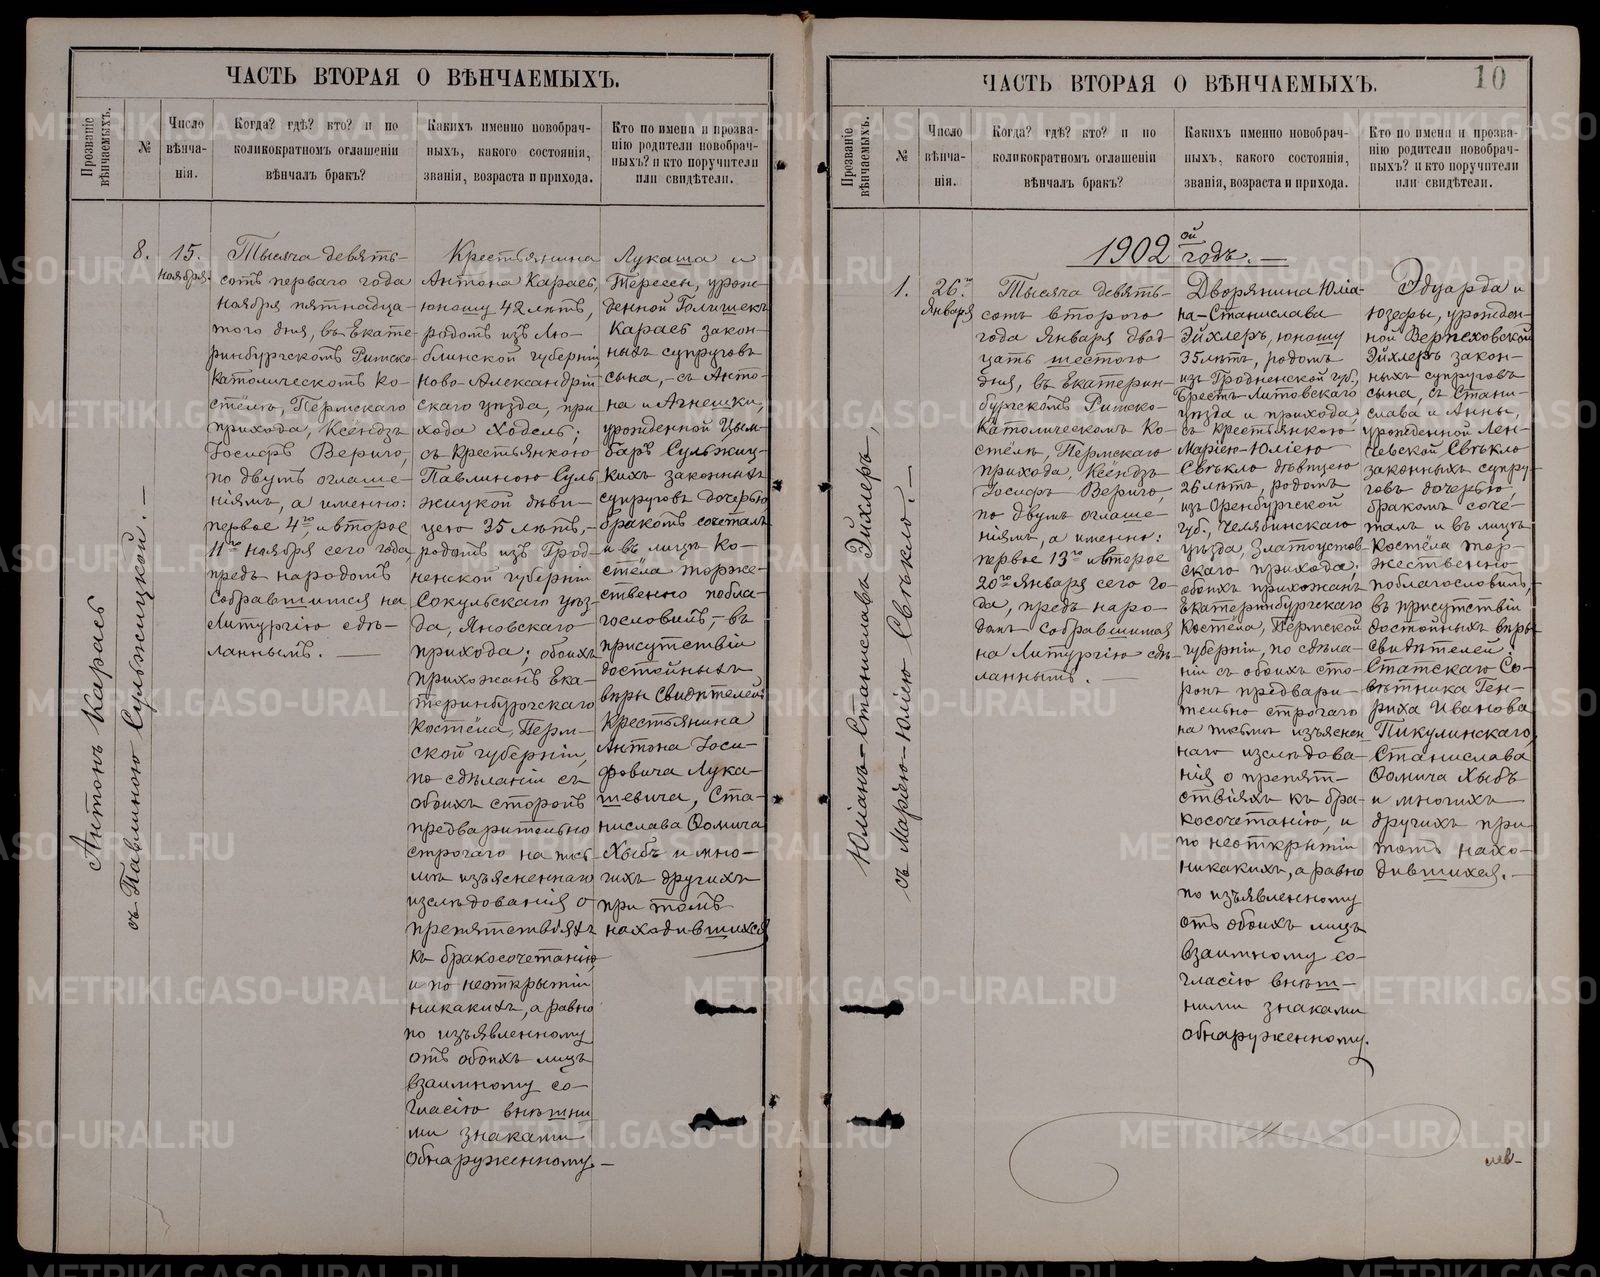 ЧАСТЬ ВТОРАЯ О ВѢНЧАЕМЫХЪ.
Прозваніе вѣнчаемыхъ.
№
Число
вѣнча-
нія.
Когда? гдѣ? кто? и по
коликократномъ оглашеніи
вѣнчалъ бракъ?
Какихъ именно новобрач-
ныхъ, какого состоянія,
званія, возраста и прихода.
Кто по имени и прозва-
нію родители новобрач-
ныхъ? и кто поручители
или свидѣтели.
Антонъ Карась
съ Павлиною Сульжицкой. —
8.
15.
ноября.
Тысяча девять-
сотъ перваго года
ноября пятнадца-
таго дня, въ Екате-
ринбургскомъ Римско-
Католическомъ Ко-
стёлѣ, Пермскаго
прихода, Ксёндзъ
Іосифъ Вериго,
по двумъ оглаше-
ніямъ, а именно:
первое 4го, и второе
11го ноября сего года,
предъ народомъ
собравшимся на
Литургію сдѣ-
ланнымъ. —
Крестьянина
Антона Карась,
юношу 42 лѣтъ,
родомъ изъ Лю-
блинской губерніи,
Ново-Александрій-
скаго уѣзда, при-
хода Ходель;
съ крестьянкою
Павлиною Суль-
жицкой дѣви-
цею 35 лѣтъ, —
родомъ изъ Грод-
ненской губерніи
Сокульскаго уѣз-
да, Яновскаго
прихода; обоихъ
прихожанъ Ека-
теринбургскаго
Костёла, Перм-
ской губерніи,
по сдѣланіи съ
обоихъ сторонъ
предварительно
строгаго на пись-
мѣ изъясненнаго
изслѣдованія о
препятствіяхъ
къ бракосочетанію
и по неоткрытіи
никакихъ, а равно
по изъявленному
отъ обоихъ лицъ
взаимному со-
гласію внѣшни
ми знаками
обнаруженному. —
Лукаша и
Терессы, урож-
денной Голишекъ
Карась закон-
ныхъ супруговъ
сына, — съ Анто-
на и Агнешки,
урожденной Цым-
баръ Сульжиц-
кихъ законныхъ
супруговъ дочерью,
бракомъ сочеталъ
и въ лицѣ Ко-
стёла торже-
ственно побла-
гословилъ, — въ
присутствіи
достойныхъ
вѣры свидѣтелей:
Крестьянина
Антона Іоси-
фовича Лука-
шевича, Ста-
нислава Ѳомича
Хыбъ и мно-
гихъ другихъ
при томъ
находившихся
ЧАСТЬ ВТОРАЯ О ВѢНЧАЕМЫХЪ.
10
Прозваніе вѣнчаемыхъ.
№
Число
вѣнча-
нія.
Когда? гдѣ? кто? и по
коликократномъ оглашеніи
вѣнчалъ бракъ?
Какихъ именно новобрач-
ныхъ, какого состоянія,
званія, возраста и прихода.
Кто по имени и прозва-
нію родители новобрач-
ныхъ? и кто поручители
или свидѣтели.
1902ой годъ. —
Юліанъ-Станиславъ Эйхлеръ,
съ Маріею-Юліею Свѣкло. —
1.
26го
Января
Тысяча девять-
сотъ второго
года Января двад-
цать шестого
дня, въ Екатерин-
бургскомъ Римско-
Католическомъ Ко-
стёлѣ, Пермскаго
прихода, Ксёндзъ
Іосифъ Вериго,
по двумъ оглаше-
ніямъ, а именно:
первое 13го и второе
20го Января сего го-
да, предъ наро-
домъ собравшимся
на Литургію сдѣ-
ланнымъ. —
Дворянина Юліа-
на-Станислава
Эйхлеръ, юношу
35 лѣтъ, родомъ
изъ Гродненской губ.,
Брестъ-Литовскаго
уѣзда и прихода
съ крестьянкою
Маріею-Юліею
Свѣкло дѣвицею
26 лѣтъ, родомъ
изъ Оренбургской
губ., Челябинскаго
уѣзда, Златоустов-
скаго прихода,
обоихъ прихожанъ
Екатеринбургскаго
Костёла, Пермской
губерніи, по сдѣла-
ніи съ обоихъ сто-
ронъ предвари-
тельно строгаго
на письмѣ изъяснен
наго изслѣдова-
нія о препят-
ствіяхъ къ бра-
косочетанію, и
по неоткрытіи
никакихъ, а равно
по изъявленному
отъ обоихъ лицъ
взаимному со-
гласію внѣш-
ними знаками
обнаруженному.
Эдуарда и
Юзефы, урожден-
ной Верпеховской
Эйхлеръ закон-
ныхъ супруговъ
сына, съ Стани-
слава и Анны,
урожденной Лен-
чевской Свѣкло
законныхъ супру-
говъ дочерью,
бракомъ соче-
талъ и въ лицѣ
Костёла тор-
жественно
поблагословилъ, —
въ присутствіи
достойныхъ вѣры
свидѣтелей:
Статскаго Со-
вѣтника Ген-
риха Иванова
Пикулинскаго,
Станислава
Ѳомича Хыбъ
и многихъ
другихъ при
томъ нахо-
дившихся. —
METRIKI.GASO-URAL.RU